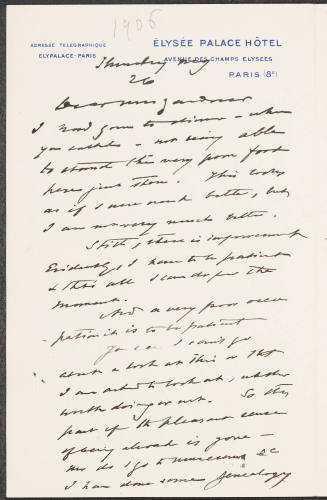 1906
ADRESSE TÉLÉGRAPHIQUE
ELYPALACE-PARIS
ÉLYSÉE PALACE HÔTEL
AVENUE DES CHAMPS ELYSÉES
PARIS (8E)
Thursday
26
Dear Mrs Gardner
I had gone to dinner - when
you called - not being able
to stand the very poor food
here just then. This looks
as if I were much better, but
I am not very much better.
Still, there is improvement
Evidently I have to be patient
& this all I can do for the
moment.
And a very poor occu-
pation it is to be patient
You see I can't go
about & look at this or that
I am asked to look at, whether
worth doing or not. So this
part of the pleasant
of being abroad is gone -
nor do I go to museums &c
I have done some genealogy